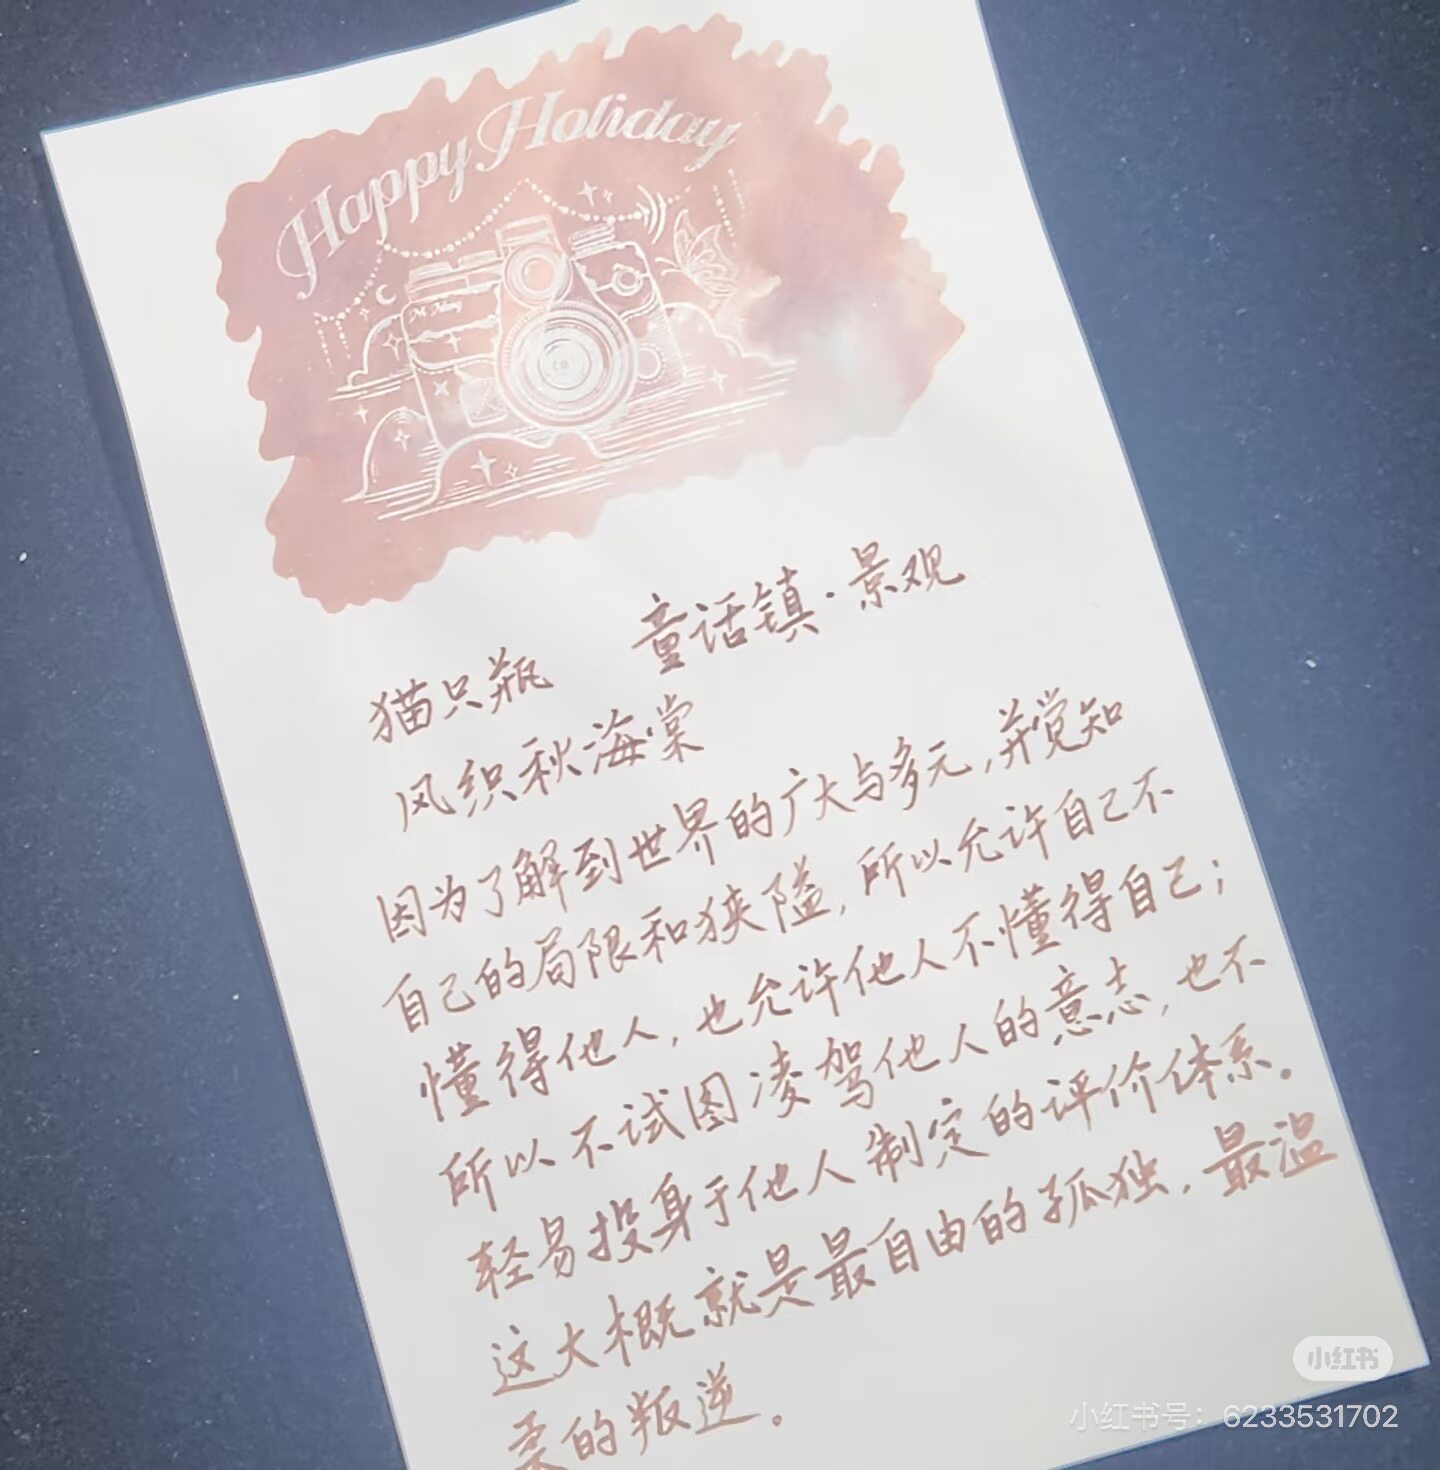 Happy Holiday
童话镇·景观
猫只瓶
风织秋海棠
因为了解到世界的广大与多元,并觉知
自己的局限和狭隘,所以允许自己不
懂得他人,也允许他人不懂得自己;
所以不试图凌驾他人的意志,也不
轻易投身于他人制定的评价体系。
这大概就是最自由的孤独,最温
柔的叛逆。
小红书
小红书号:6233531702